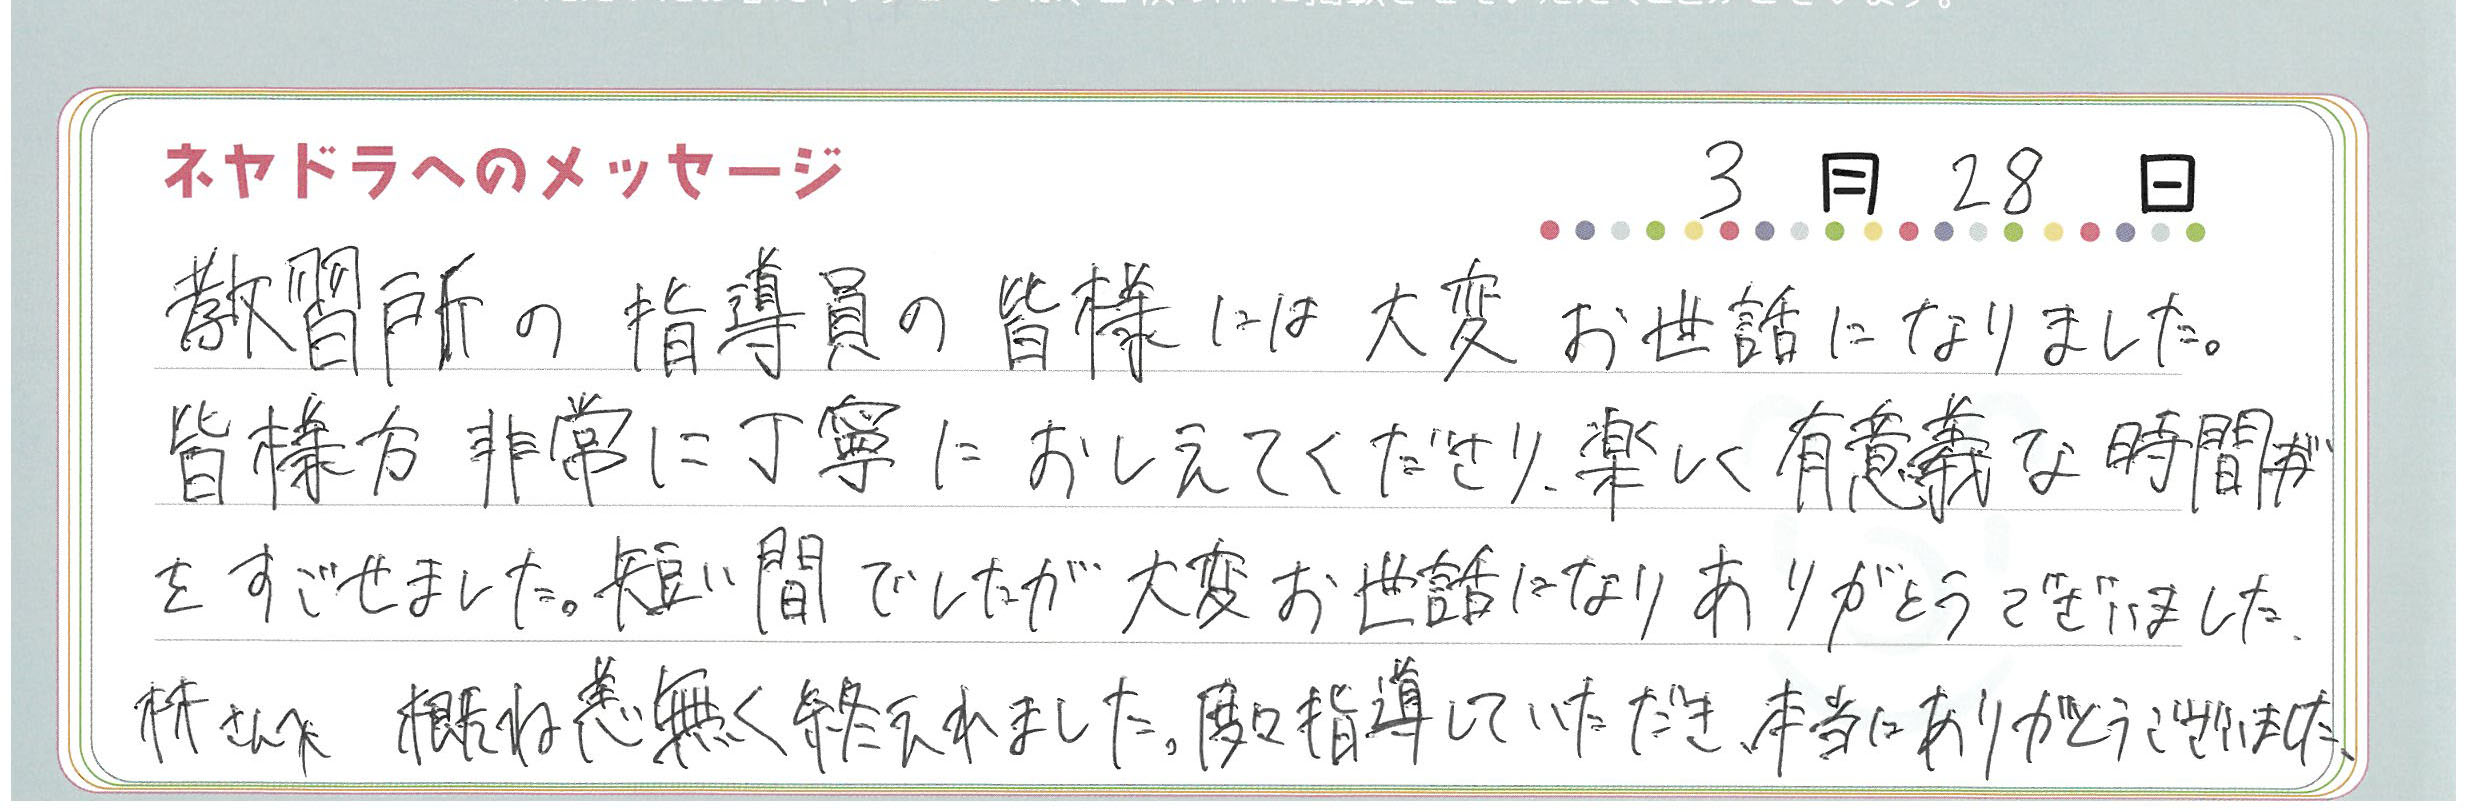 ネヤドラへのメッセージ
3月28日
教習所の指導員の皆様には大変お世話になりました。
皆様方非常に丁寧におしえてくださり、楽しく有意義な時間が
をすごせました。短い間でしたが大変お世話になりありがとうございました。
林さんへ 概ね恙無く終えれました。度々指導していただき、本当にありがとうございました、